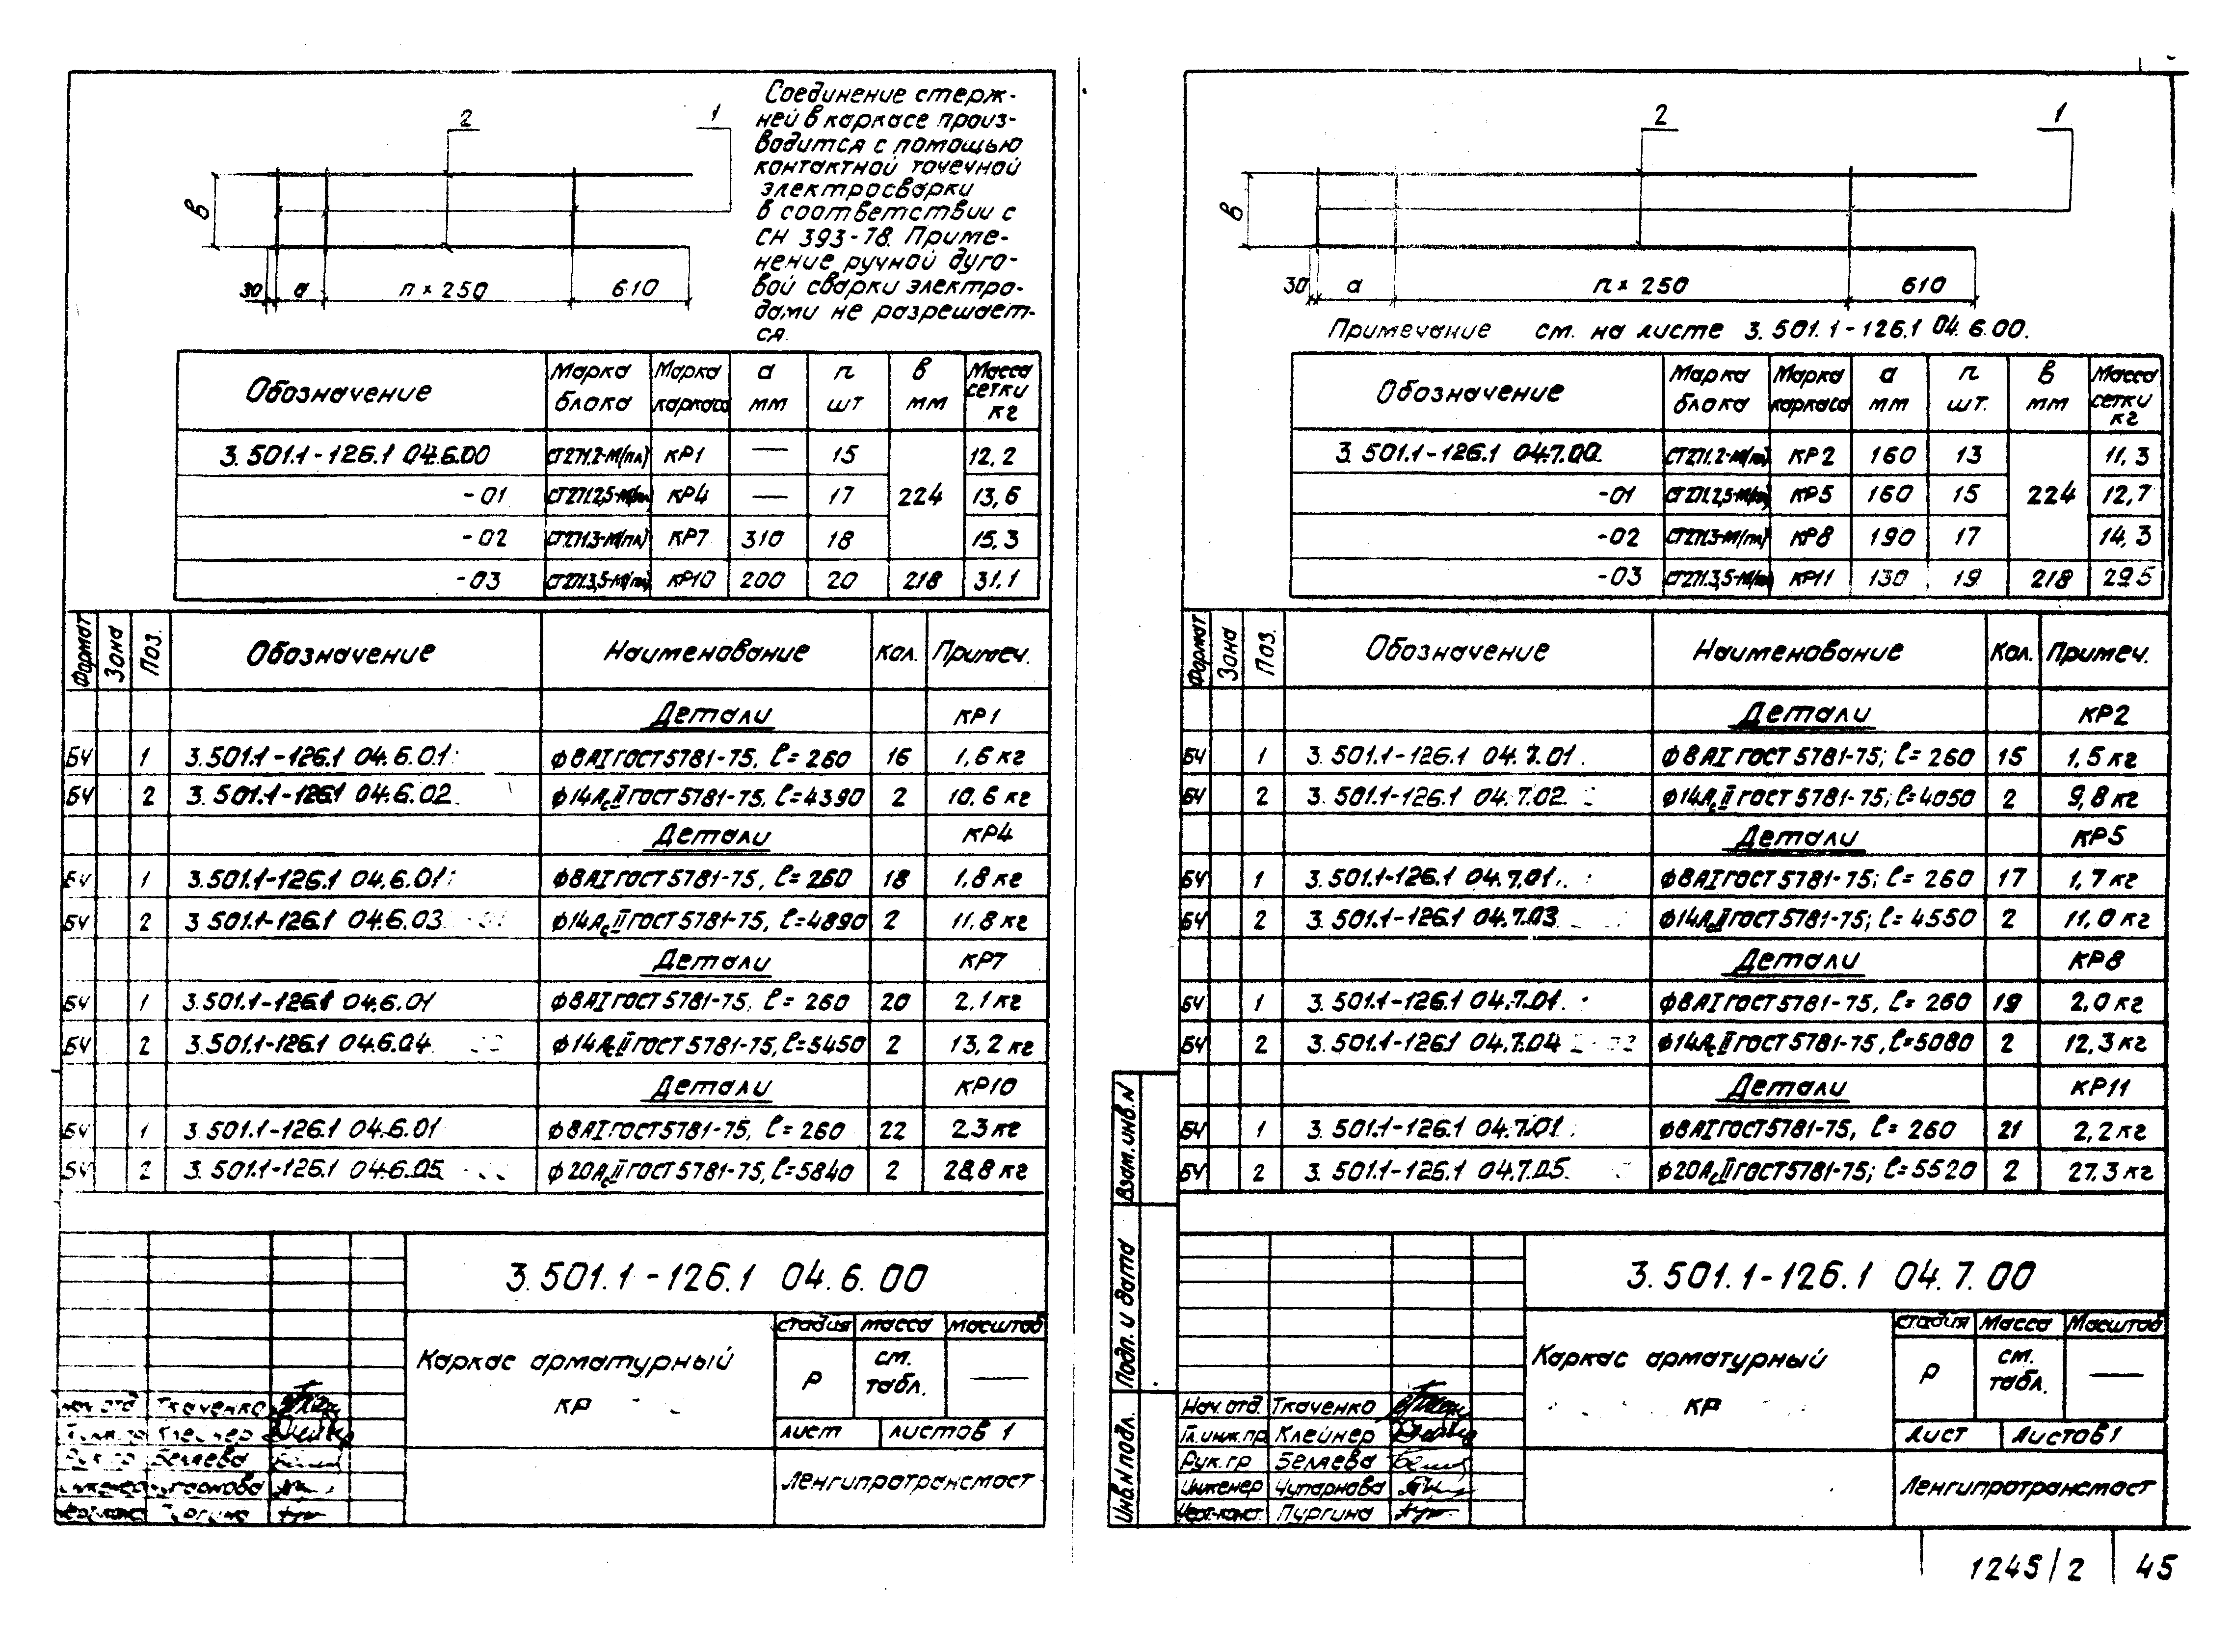 2
1
Соединение стерж-
ней в каркасе произ-
водится с помощью
контактной точечной
электросварки
в соответствии с
СН 393-78. Приме-
нение ручной дуго-
вой сварки электро-
дами не разрешает-
ся.
в
30 а п × 250 610
Обозначение Марка блока Марка каркаса а мм п шт. в мм Масса сетки кг
3.501.1-126.1 04.6.00 КР1 — 15 224 12,2
-01 КР4 — 17 13,6
-02 КР7 310 18 15,3
-03 КР10 200 20 218 31.1
Формат Зона Поз. Обозначение Наименование Кол. Примеч.
Детали КР1
БЧ 1 3.501.1-126.1 04.6.01 ф8АI ГОСТ 5781-75, ℓ=260 16 1,6 кг
БЧ 2 3.501.1-126.1 04.6.02 ф14АсII ГОСТ 5781-75, ℓ=4390 2 10,6 кг
Детали КР4
БЧ 1 3.501.1-126.1 04.6.01 ф8АI ГОСТ 5781-75, ℓ=260 18 1,8 кг
БЧ 2 3.501.1-126.1 04.6.03 ф14АсII ГОСТ 5781-75, ℓ=4890 2 11,8 кг
Детали КР7
БЧ 1 3.501.1-126.1 04.6.01 ф8АI ГОСТ 5781-75, ℓ=260 20 2,1 кг
БЧ 2 3.501.1-126.1 04.6.04 ф14АсII ГОСТ 5781-75, ℓ=5450 2 13,2 кг
Детали КР10
БЧ 1 3.501.1-126.1 04.6.01 ф8АI ГОСТ 5781-75, ℓ=260 22 2,3 кг
БЧ 2 3.501.1-126.1 04.6.05 ф20АсII ГОСТ 5781-75, ℓ=5840 2 28,8 кг
3.501.1-126.1 04.6.00
Каркас арматурный
КР
стадия масса масштаб
Р см. табл. —
лист листов 1
Ленгипротрансмост
Нач.отд Ткаченко
Клейнер
Беляева
2
1
в
30 а п × 250 610
Примечание см. на листе 3.501.1-126.1 04.6.00.
Обозначение Марка блока Марка каркаса а мм п шт. в мм Масса сетки кг
3.501.1-126.1 04.7.00 КР2 160 13 224 11,3
-01 КР5 160 15 12,7
-02 КР8 190 17 14,3
-03 КР11 130 19 218 29.5
Формат Зона Поз. Обозначение Наименование Кол. Примеч.
Детали КР2
БЧ 1 3.501.1-126.1 04.7.01 ф8АI ГОСТ 5781-75; ℓ=260 15 1,5 кг
БЧ 2 3.501.1-126.1 04.7.02 ф14АсII ГОСТ 5781-75; ℓ=4050 2 9,8 кг
Детали КР5
БЧ 1 3.501.1-126.1 04.7.01 ф8АI ГОСТ 5781-75; ℓ=260 17 1,7 кг
БЧ 2 3.501.1-126.1 04.7.03 ф14АсII ГОСТ 5781-75; ℓ=4550 2 11,0 кг
Детали КР8
БЧ 1 3.501.1-126.1 04.7.01 ф8АI ГОСТ 5781-75, ℓ=260 19 2,0 кг
БЧ 2 3.501.1-126.1 04.7.04 ф14АсII ГОСТ 5781-75, ℓ=5080 2 12,3 кг
Детали КР11
БЧ 1 3.501.1-126.1 04.7.01 ф8АI ГОСТ 5781-75, ℓ=260 21 2,2 кг
БЧ 2 3.501.1-126.1 04.7.05 ф20АсII ГОСТ 5781-75; ℓ=5520 2 27.3 кг
Взам.инв.N
Подп. и дата
Инв.N подл.
3.501.1-126.1 04.7.00
Каркас арматурный
КР
стадия Масса Масштаб
Р см. табл. —
Лист Листов 1
Ленгипротрансмост
Нач.отд. Ткаченко
Гл.инж.пр Клейнер
Рук.гр Беляева
Инженер Чупарнова
Черт-конст. Пургина
1245/2 45